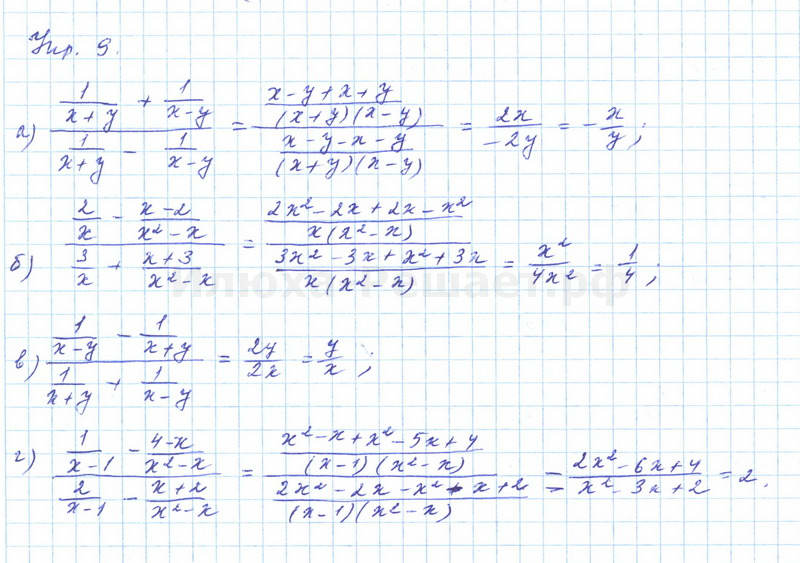 Упр. 9.
а) (1/(x+y) + 1/(x-y)) / (1/(x+y) - 1/(x-y)) = ((x-y+x+y)/((x+y)(x-y))) / ((x-y-x-y)/((x+y)(x-y))) = 2x/(-2y) = -x/y;
б) (2/x - (x-2)/(x²-x)) / (3/x + (x+3)/(x²-x)) = ((2x²-2x+2x-x²)/(x(x²-x))) / ((3x²-3x+x²+3x)/(x(x²-x))) = x²/4x² = 1/4;
в) (1/(x-y) - 1/(x+y)) / (1/(x+y) + 1/(x-y)) = 2y/2x = y/x;
г) (1/(x-1) - (4-x)/(x²-x)) / (2/(x-1) - (x+2)/(x²-x)) = ((x²-x+x²-5x+4)/((x-1)(x²-x))) / ((2x²-2x-x²-x+2)/((x-1)(x²-x))) = (2x²-6x+4)/(x²-3x+2) = 2.